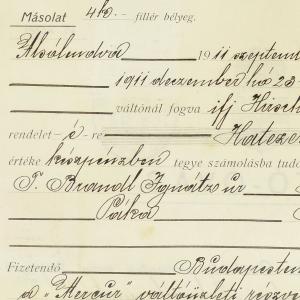 Másolat 4 k. – fillér bélyeg.
Alsólendva 1911 szeptem
1911 deczember hó 23
váltónál fogva ifj Hirsch
rendelet - é - re Hatez
értéke készpénzben tegye számolásba tudo
T. Brandl Ignátz úr
Páka
Fizetendő Budapesten
a "Mercur" váltóüzleti részv